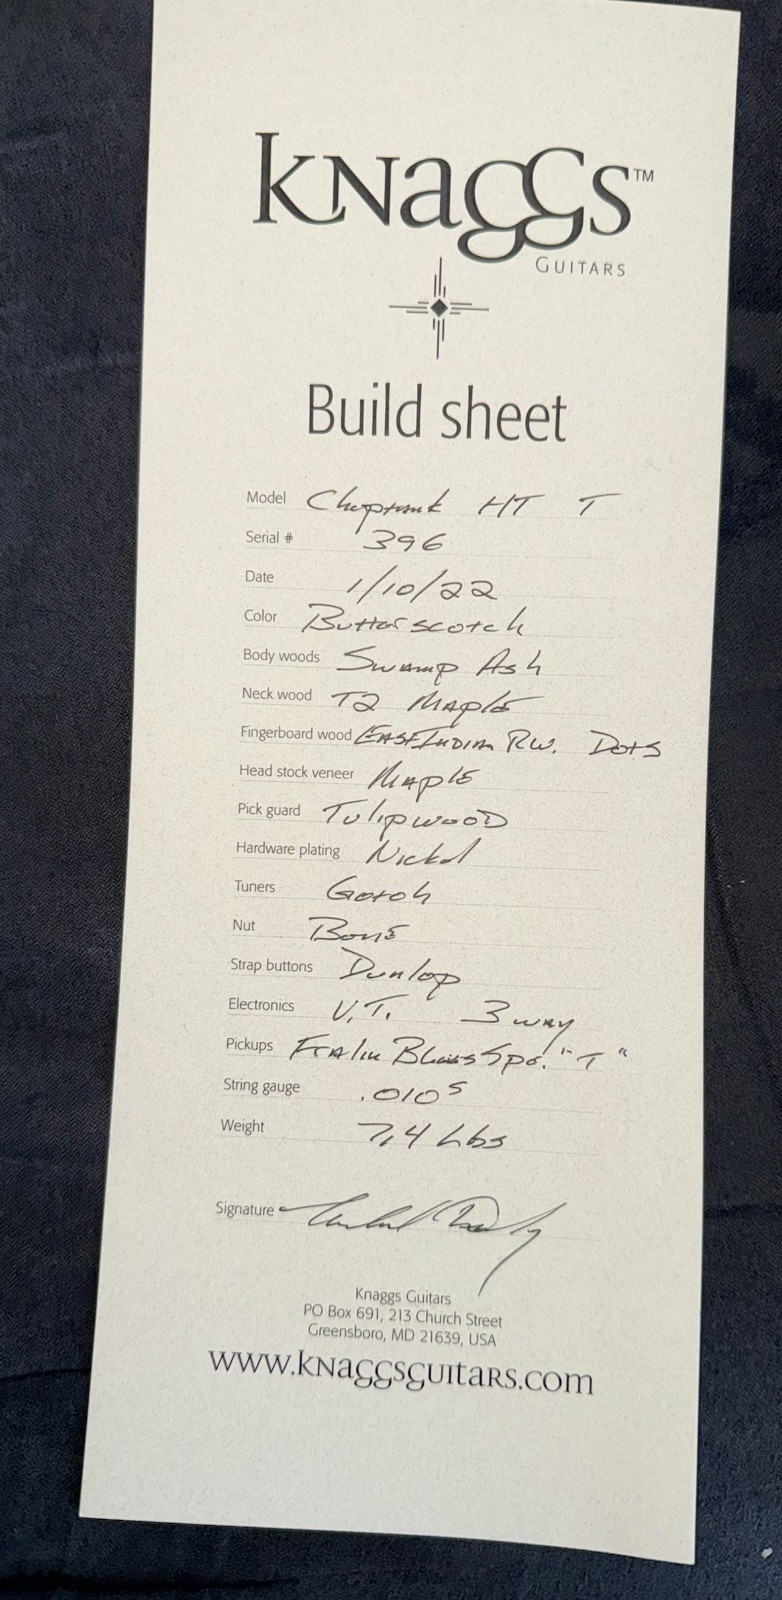 Knaggs™
Guitars
Build sheet
Model Choptank HT T
Serial # 396
Date 1/10/22
Color Butterscotch
Body woods Swamp Ash
Neck wood T2 Maple
Fingerboard wood East Indian RW. Dots
Head stock veneer Maple
Pick guard Tulipwood
Hardware plating Nickel
Tuners Gotoh
Nut Bone
Strap buttons Dunlop
Electronics V.T. 3 way
Pickups Fralin Blues Spe. "T"
String gauge .010s
Weight 7.4 Lbs
Signature
Knaggs Guitars
PO Box 691, 213 Church Street
Greensboro, MD 21639, USA
www.knaggsguitars.com